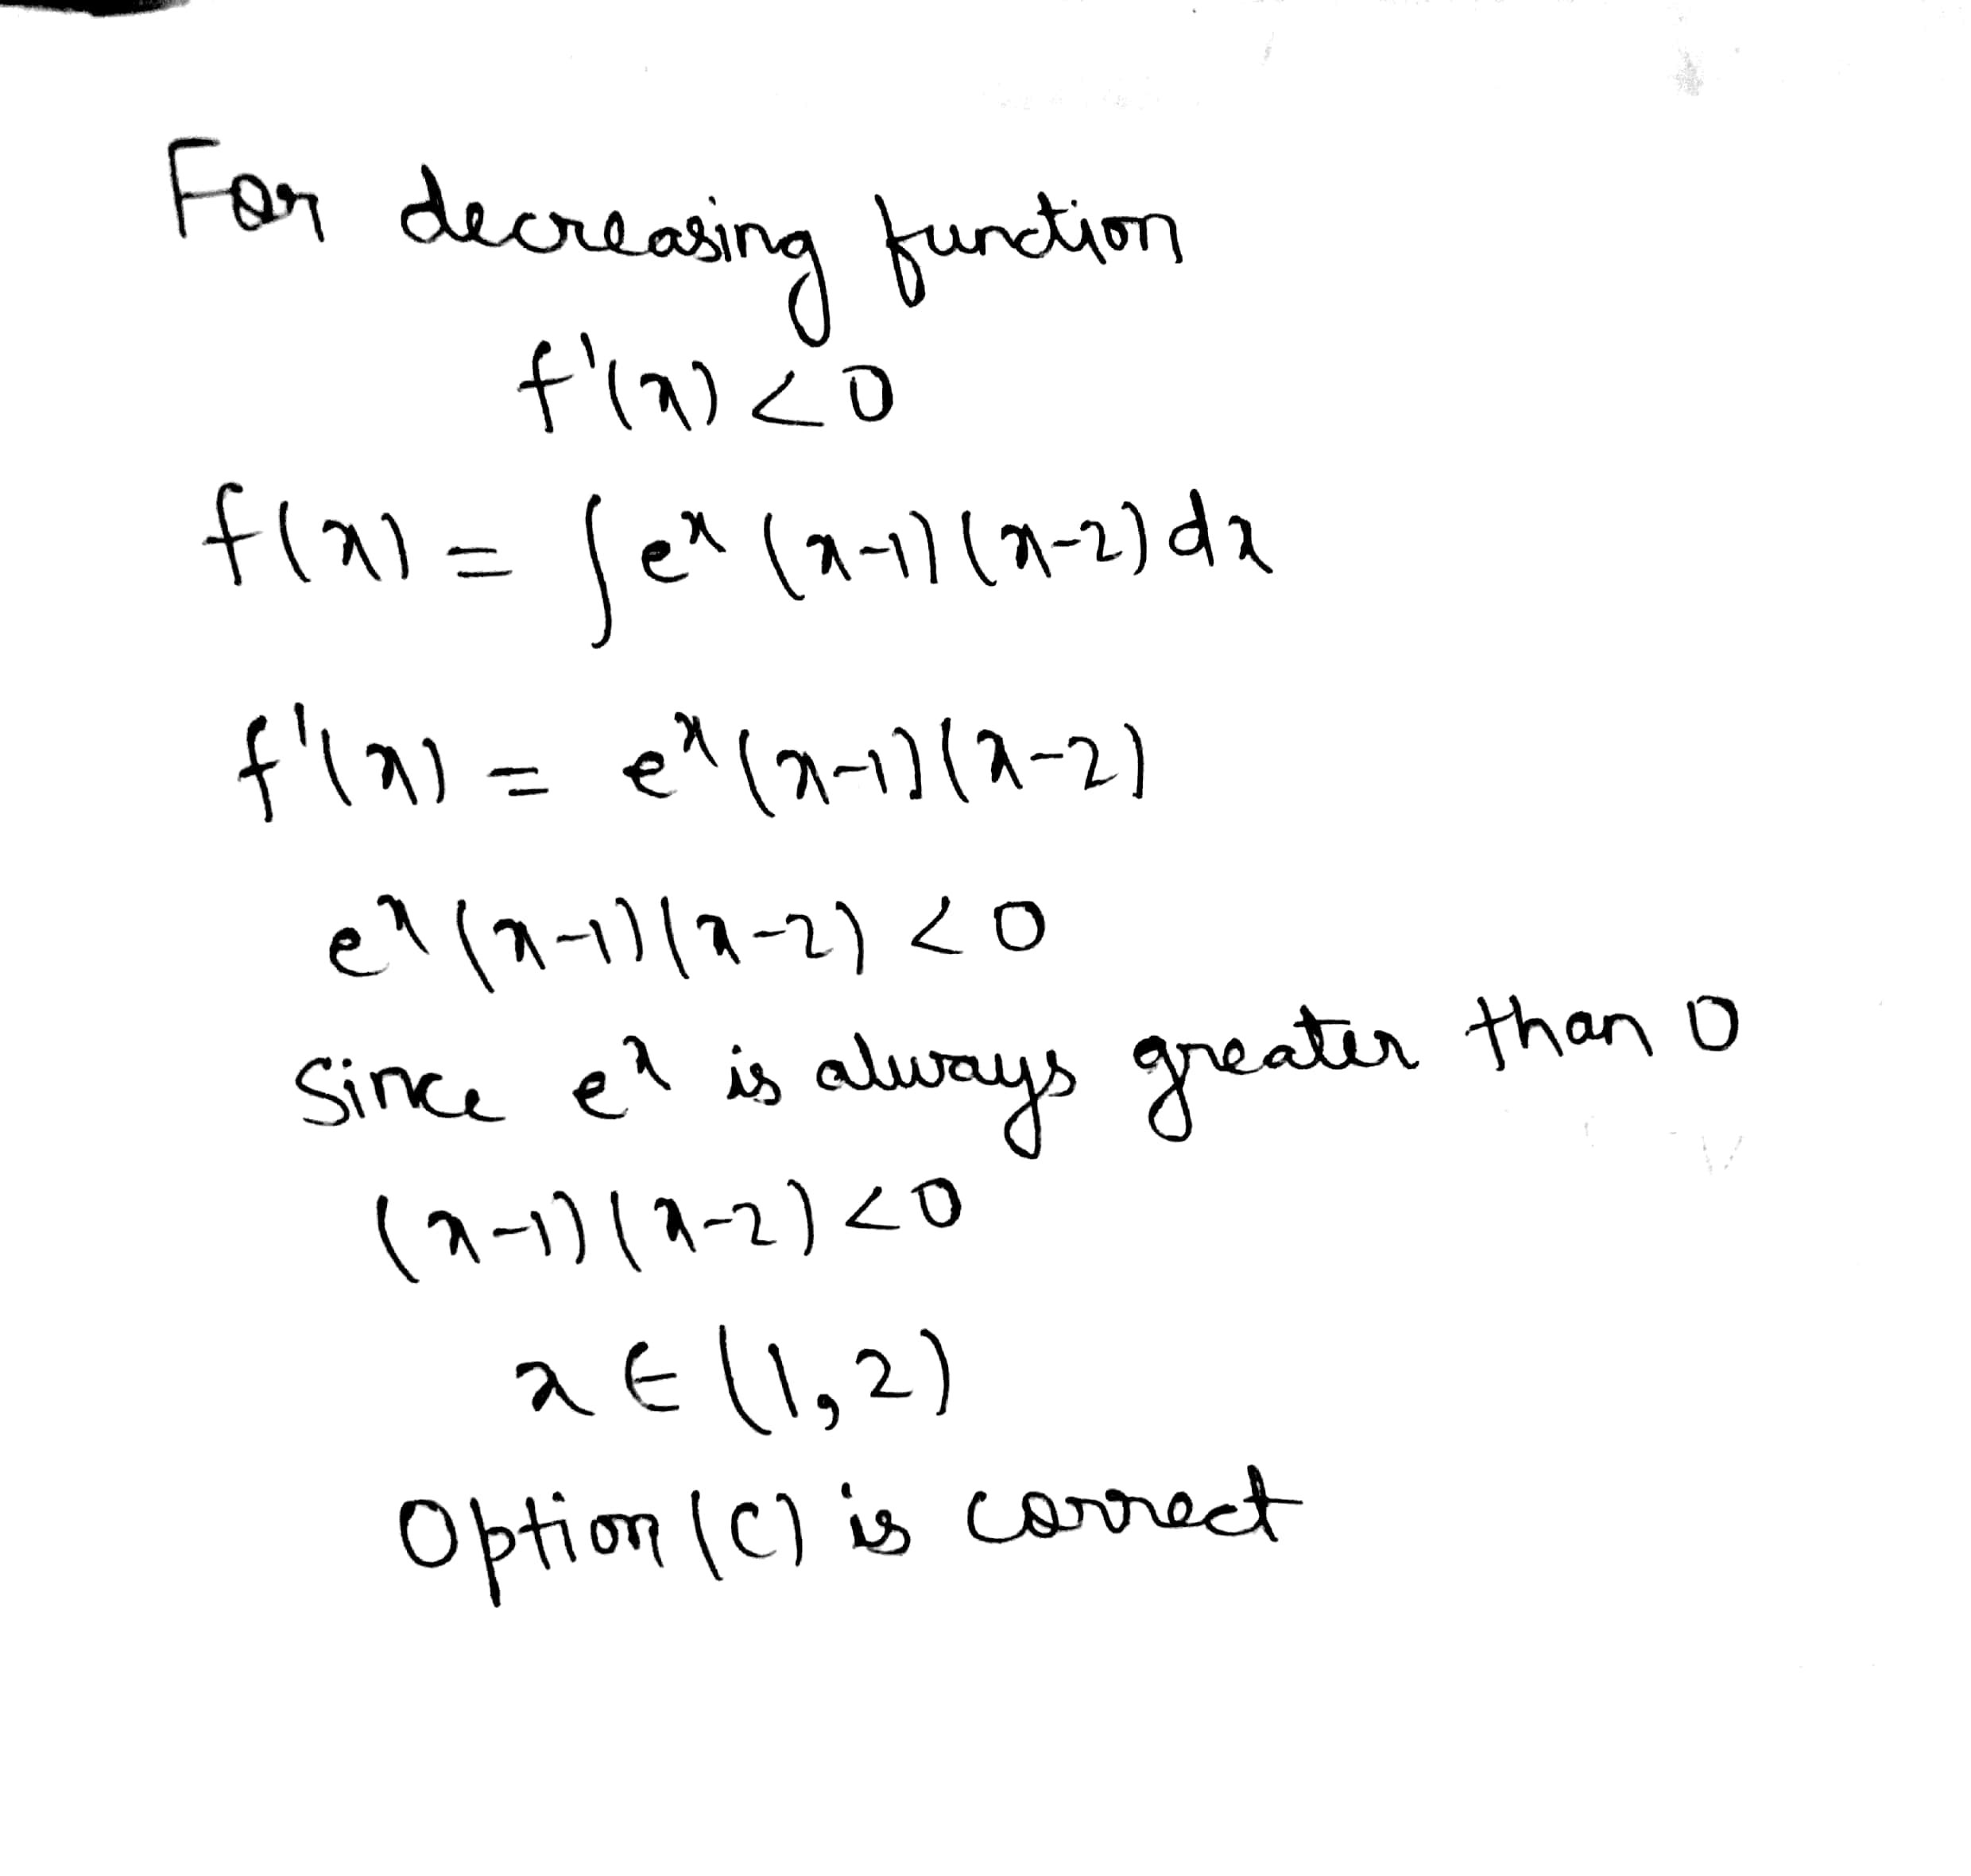 For decreasing function
f'(x) < 0
f(x) = ∫e^x (x-1)(x-2)dx
f'(x) = e^x (x-1)(x-2)
e^x (x-1)(x-2) < 0
Since e^x is always greater than 0
(x-1)(x-2) < 0
x ∈ (1, 2)
Option (C) is correct